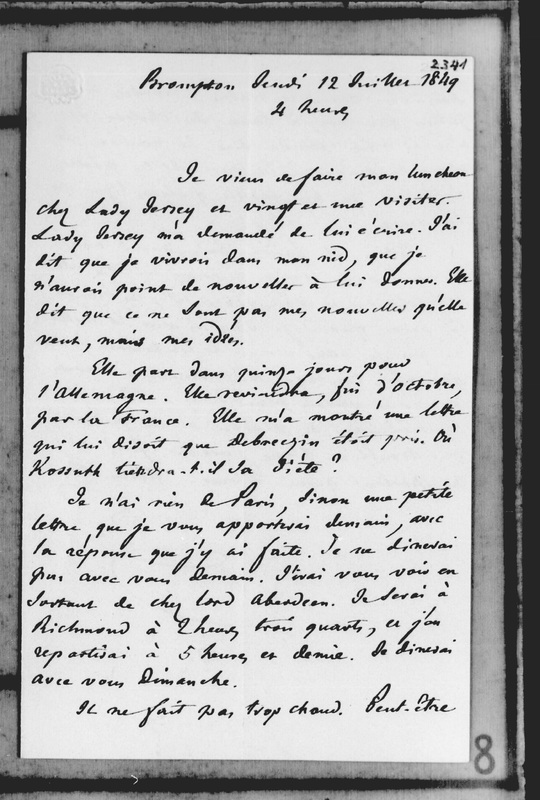 2341
Brompton Jeudi 12 Juillet 1849
4 heures
Je viens de faire mon luncheon
chez Lady Jersey et vingt et une visites.
Lady Jersey m'a demandé de lui écrire. J'ai
dit que je vivrois dans mon nid, que je
n'aurois point de nouvelles à lui donner. Elle
dit que ce ne sont pas mes nouvelles qu'elle
veut, mais mes idées.
Elle part dans quinze jours pour
l'Allemagne. Elle reviendra, fin d'octobre,
par la France. Elle m'a montré une lettre
qui lui disoit que Debreczin étoit pris. Où
Kossuth tiendra-t-il sa Diète ?
Je n'ai rien de Paris, sinon une petite
lettre que je vous apporterai demain, avec
la réponse que j'y ai faite. Je ne dinerai
pas avec vous demain. J'irai vous voir en
sortant de chez lord Aberdeen. Je serai à
Richmond à 2 heures trois quarts, et j'en
repartirai à 5 heures et demie. Je dinerai
avec vous Dimanche.
Il ne fait pas trop chaud. Peut-être
8